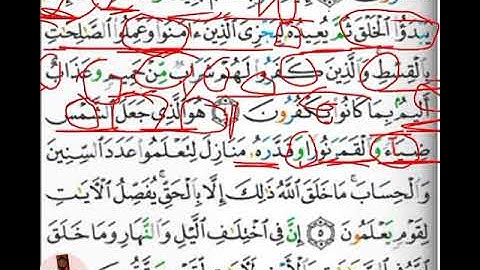 يَبۡدَؤُاْ ٱلۡخَلۡقَ ثُمَّ يُعِيدُهُۥ لِيَجۡزِيَ ٱلَّذِينَ ءَامَنُواْ وَعَمِلُواْ ٱلصَّٰلِحَٰتِ
بِٱلۡقِسۡطِۚ وَٱلَّذِينَ كَفَرُواْ لَهُمۡ شَرَابٞ مِّنۡ حَمِيمٖ وَعَذَابٌ
أَلِيمُۢ بِمَا كَانُواْ يَكۡفُرُونَ ٤ هُوَ ٱلَّذِي جَعَلَ ٱلشَّمۡسَ
ضِيَآءٗ وَٱلۡقَمَرَ نُورٗا وَقَدَّرَهُۥ مَنَازِلَ لِتَعۡلَمُواْ عَدَدَ ٱلسِّنِينَ
وَٱلۡحِسَابَۚ مَا خَلَقَ ٱللَّهُ ذَٰلِكَ إِلَّا بِٱلۡحَقِّۚ يُفَصِّلُ ٱلۡأٓيَٰتِ
لِقَوۡمٖ يَعۡلَمُونَ ٥ إِنَّ فِي ٱخۡتِلَٰفِ ٱلَّيۡلِ وَٱلنَّهَارِ وَمَا خَلَقَ